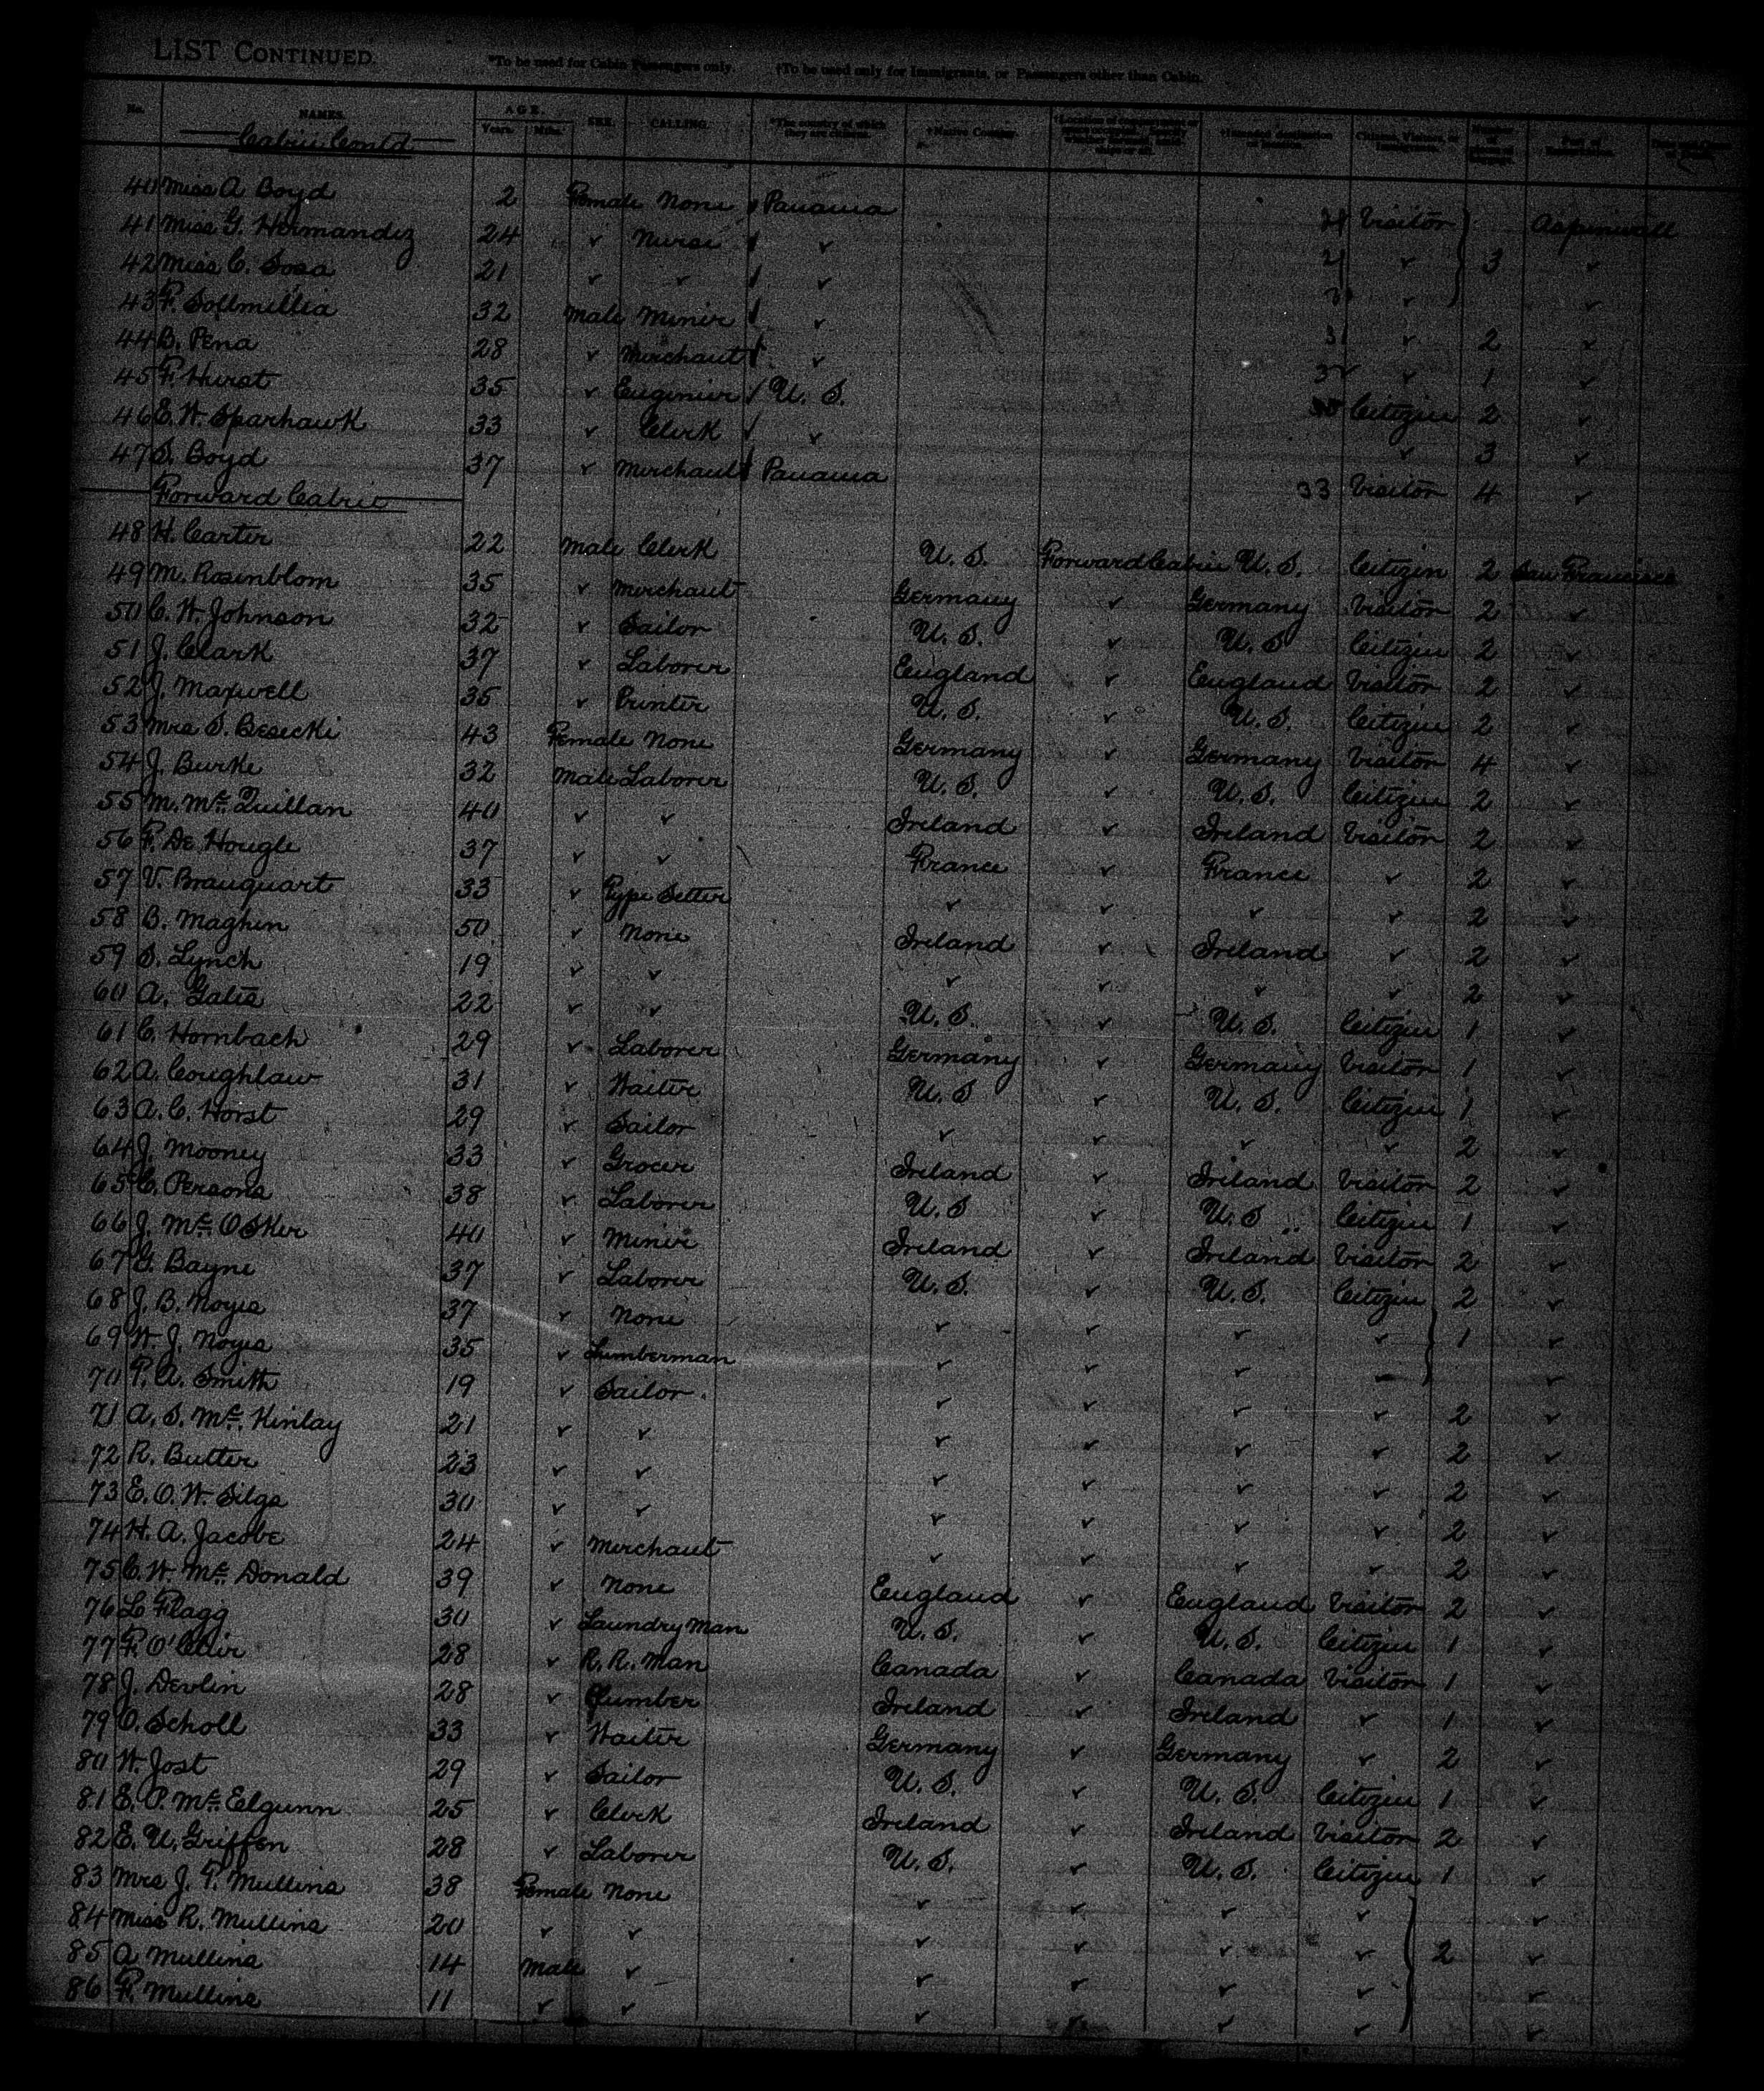 LIST CONTINUED.
*To be used for Cabin Passengers only. †To be used only for Immigrants, or Passengers other than Cabin.
No. NAMES. AGE. Years. Mths. SEX. CALLING. *The country of which they are citizens. †Native Country. †Intended destination or location. Citizens, Visitors, or Immigrants.
Cabin Contd
40 Miss A Boyd 2 Female None Panama 21 Visitor Aspinwall
41 Miss G. Hernandez 24 ✓ Nurse ✓ 21 ✓ 3 ✓
42 Miss C. Sosa 21 ✓ ✓ ✓ ✓ ✓
43 F. Sollmillia 32 Male Miner ✓ 31 ✓ 2 ✓
44 B. Pena 28 ✓ Merchant ✓ ✓ 1 ✓
45 F. Hurst 35 ✓ Engineer U. S. Citizen 2 ✓
46 E. W. Sparhawk 33 ✓ Clerk ✓ ✓ 3 ✓
47 S. Boyd 37 ✓ Merchant Panama 33 Visitor 4 ✓
Forward Cabin
48 H. Carter 22 Male Clerk U. S. Forward Cabin U. S. Citizen 2 San Francisco
49 M. Rosenblom 35 ✓ Merchant Germany ✓ Germany Visitor 2 ✓
50 C. W. Johnson 32 ✓ Sailor U. S. ✓ U. S Citizen 2 ✓
51 J. Clark 37 ✓ Laborer England ✓ England Visitor 2 ✓
52 J. Maxwell 35 ✓ Printer U. S. ✓ U. S. Citizen 2 ✓
53 Mrs S. Besecki 43 Female None Germany ✓ Germany Visitor 4 ✓
54 J. Burke 32 Male Laborer U. S. ✓ U. S. Citizen 2 ✓
55 M. Mc Quillan 40 ✓ ✓ Ireland ✓ Ireland Visitor 2 ✓
56 F. De Hougle 37 ✓ ✓ France ✓ France ✓ 2 ✓
57 V. Brauquart 33 ✓ Type Setter ✓ ✓ ✓ ✓ 2 ✓
58 B. Maghen 50 ✓ None Ireland ✓ Ireland ✓ 2 ✓
59 S. Lynch 19 ✓ ✓ ✓ ✓ ✓ ✓ 2 ✓
60 A. Gates 22 ✓ ✓ U. S. ✓ U. S. Citizen 1 ✓
61 C. Hornbach 29 ✓ Laborer Germany ✓ Germany Visitor 1 ✓
62 A. Coughlaw 31 ✓ Waiter U. S ✓ U. S. Citizen 1 ✓
63 A. C. Horst 29 ✓ Sailor ✓ ✓ ✓ ✓ 2 ✓
64 J. Mooney 33 ✓ Grocer Ireland ✓ Ireland Visitor 2 ✓
65 C. Persons 38 ✓ Laborer U. S ✓ U. S Citizen 1 ✓
66 J. Mc Osker 40 ✓ Miner Ireland ✓ Ireland Visitor 2 ✓
67 G. Bayne 37 ✓ Laborer U. S. ✓ U. S. Citizen 2 ✓
68 J. B. Noyes 37 ✓ None ✓ ✓ ✓ ✓ 1 ✓
69 W. J. Noyes 35 ✓ Lumberman ✓ ✓ ✓ ✓ ✓
70 P. A. Smith 19 ✓ Sailor. ✓ ✓ ✓ ✓ 2 ✓
71 A. S. Mc Kinlay 21 ✓ ✓ ✓ ✓ ✓ ✓ 2 ✓
72 R. Butter 23 ✓ ✓ ✓ ✓ ✓ ✓ 2 ✓
73 E. O. W. Silge 30 ✓ ✓ ✓ ✓ ✓ ✓ 2 ✓
74 H. A. Jacobe 24 ✓ Merchant ✓ ✓ ✓ ✓ 2 ✓
75 C. W. Mc Donald 39 ✓ None England ✓ England Visitor 2 ✓
76 L Flagg 30 ✓ Laundry Man U. S. ✓ U. S. Citizen 1 ✓
77 F. O'Clair 28 ✓ R. R. Man Canada ✓ Canada Visitor 1 ✓
78 J. Devlin 28 ✓ Plumber Ireland ✓ Ireland ✓ 1 ✓
79 O. Scholl 33 ✓ Waiter Germany ✓ Germany ✓ 2 ✓
80 W. Jost 29 ✓ Sailor U. S. ✓ U. S. Citizen 1 ✓
81 E. P. Mc Elgunn 25 ✓ Clerk Ireland ✓ Ireland Visitor 2 ✓
82 E. U. Griffen 28 ✓ Laborer U. S. ✓ U. S. Citizen 1 ✓
83 Mrs J. P. Mullins 38 Female None ✓ ✓ ✓ ✓ ✓
84 Miss R. Mullins 20 ✓ ✓ ✓ ✓ ✓ ✓ 2 ✓
85 A Mullins 14 Male ✓ ✓ ✓ ✓ ✓ ✓
86 F. Mullins 11 ✓ ✓ ✓ ✓ ✓ ✓ ✓